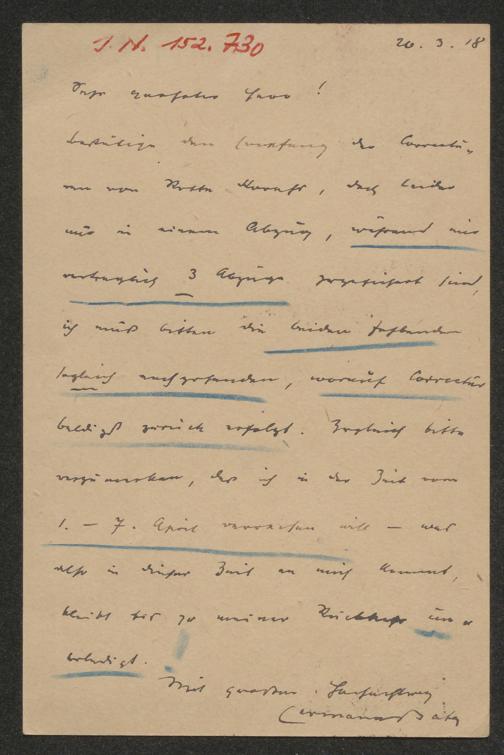 I. N. 152.730
20. 3. 18
Sehr geehrter Herr!
bestätige den Empfang der Correctu-
ren von Rotte Korahs, doch leider
nur in einem Abzug, während mir
vertraglich 3 Abzüge zugesichert sind,
ich muß bitten die beiden fehlenden
sogleich nachzusenden, worauf Correctur
baldigst zurück erfolgt. Zugleich bitte
vorzumerken, daß ich in der Zeit vom
1. – 7. April verreisen will – was
also in dieser Zeit an mich kommt,
bleibt bis zu meiner Rückkehr un-
erledigt.
Mit großer Hochachtung
Hermann Bahr